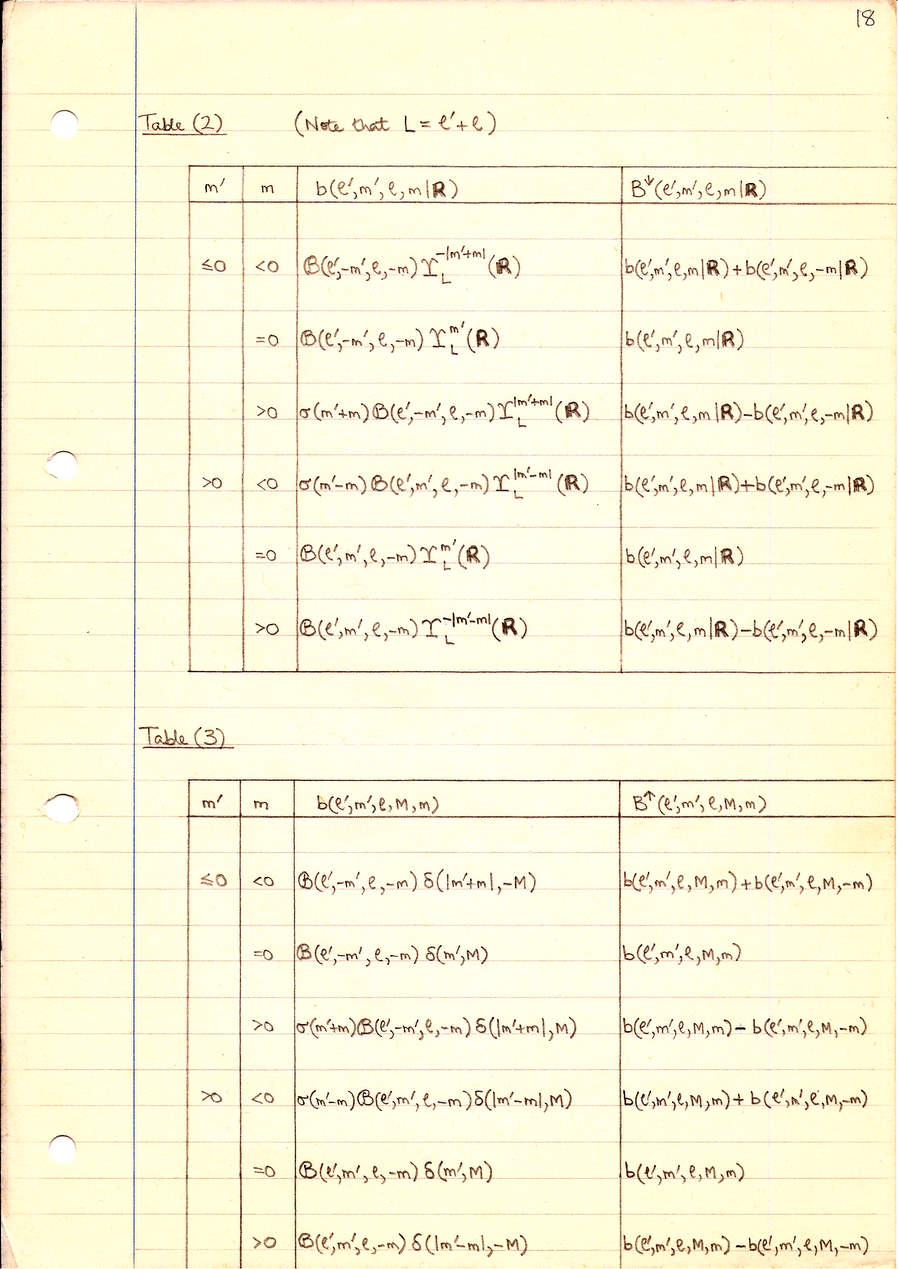 18
Table (2) (Note that L = ℓ′+ℓ)
m′ m b(ℓ′,m′,ℓ,m|R) B↓(ℓ′,m′,ℓ,m|R)
≤0 <0 ℬ(ℓ′,-m′,ℓ,-m) ϒ_L^{-|m′+m|}(R) b(ℓ′,m′,ℓ,m|R)+b(ℓ′,m′,ℓ,-m|R)
=0 ℬ(ℓ′,-m′,ℓ,-m) ϒ_L^{m′}(R) b(ℓ′,m′,ℓ,m|R)
>0 σ(m′+m)ℬ(ℓ′,-m′,ℓ,-m)ϒ_L^{|m′+m|}(R) b(ℓ′,m′,ℓ,m|R)-b(ℓ′,m′,ℓ,-m|R)
>0 <0 σ(m′-m)ℬ(ℓ′,m′,ℓ,-m)ϒ_L^{|m′-m|}(R) b(ℓ′,m′,ℓ,m|R)+b(ℓ′,m′,ℓ,-m|R)
=0 ℬ(ℓ′,m′,ℓ,-m)ϒ_L^{m′}(R) b(ℓ′,m′,ℓ,m|R)
>0 ℬ(ℓ′,m′,ℓ,-m)ϒ_L^{-|m′-m|}(R) b(ℓ′,m′,ℓ,m|R)-b(ℓ′,m′,ℓ,-m|R)
Table (3)
m′ m b(ℓ′,m′,ℓ,M,m) B↑(ℓ′,m′,ℓ,M,m)
≤0 <0 ℬ(ℓ′,-m′,ℓ,-m) δ(|m′+m|,-M) b(ℓ′,m′,ℓ,M,m)+b(ℓ′,m′,ℓ,M,-m)
=0 ℬ(ℓ′,-m′,ℓ,-m) δ(m′,M) b(ℓ′,m′,ℓ,M,m)
>0 σ(m′+m)ℬ(ℓ′,-m′,ℓ,-m) δ(|m′+m|,M) b(ℓ′,m′,ℓ,M,m)- b(ℓ′,m′,ℓ,M,-m)
>0 <0 σ(m′-m)ℬ(ℓ′,m′,ℓ,-m)δ(|m′-m|,M) b(ℓ′,m′,ℓ,M,m)+ b(ℓ′,m′,ℓ,M,-m)
=0 ℬ(ℓ′,m′,ℓ,-m) δ(m′,M) b(ℓ′,m′,ℓ,M,m)
>0 ℬ(ℓ′,m′,ℓ,-m) δ(|m′-m|,-M) b(ℓ′,m′,ℓ,M,m)-b(ℓ′,m′,ℓ,M,-m)